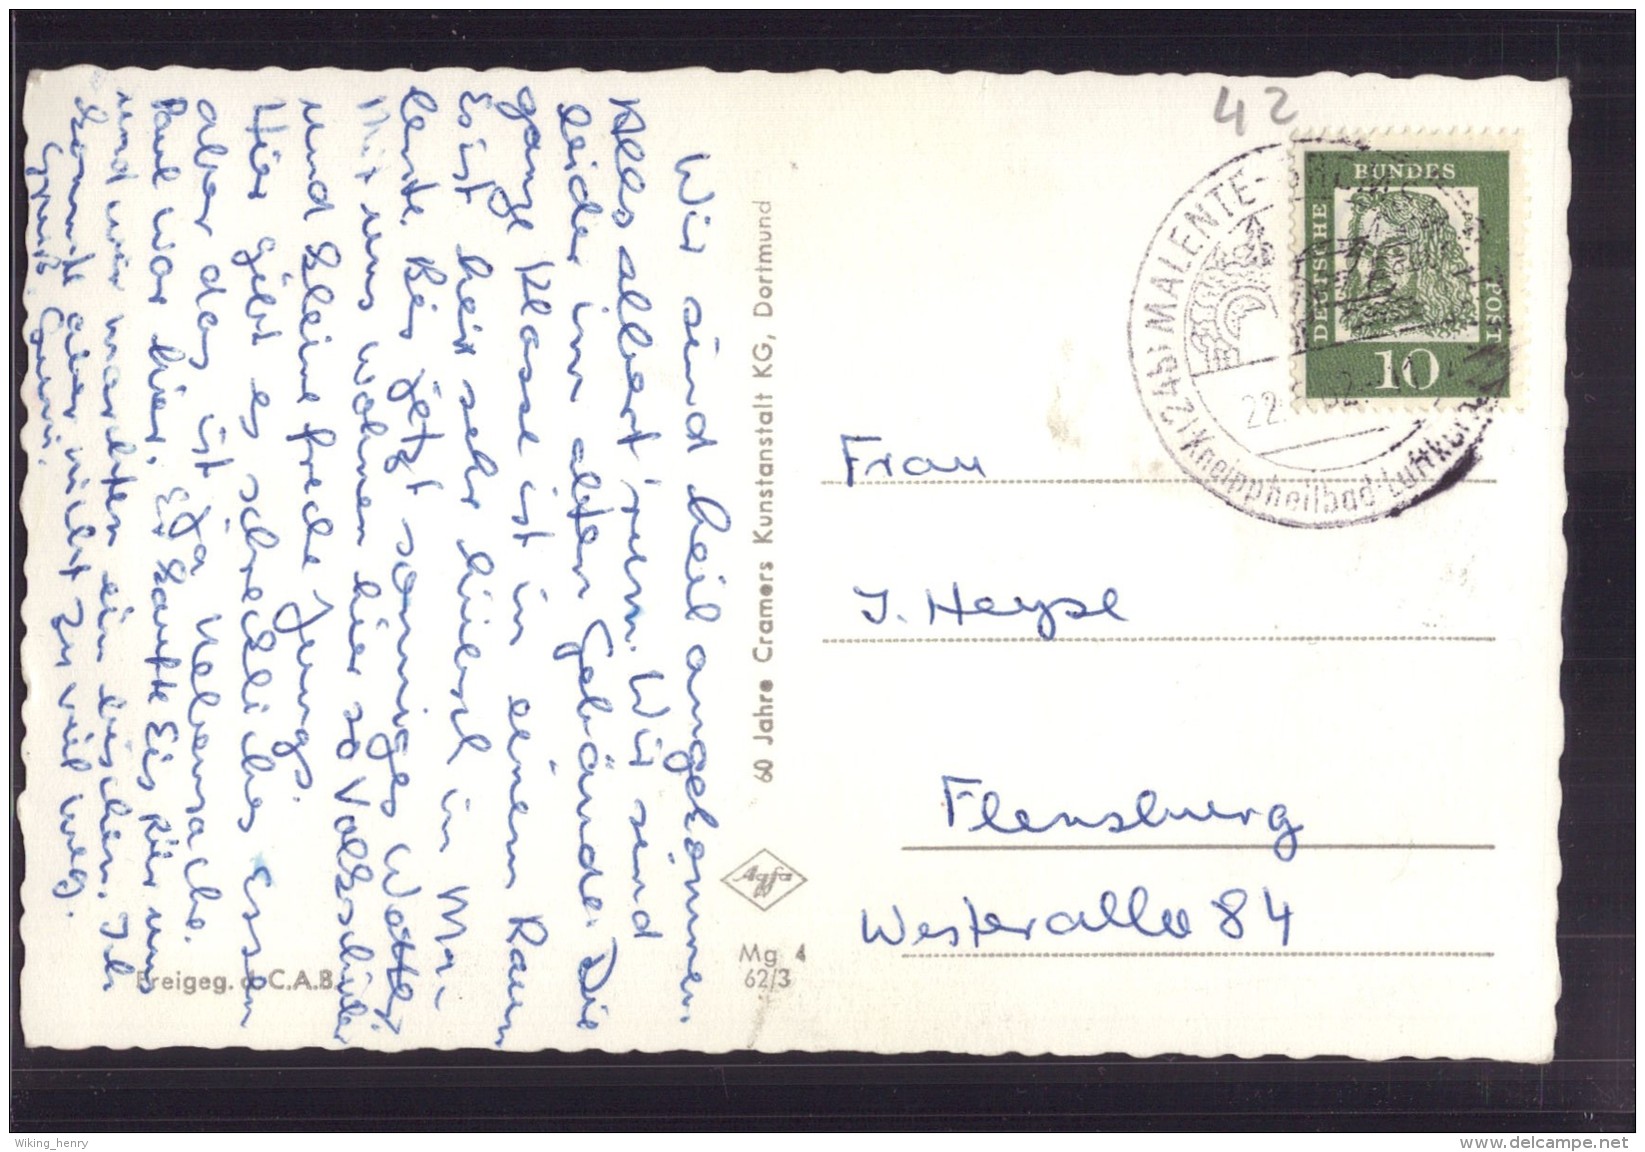 Wir sind heil angekommen.
Alles albert rum. Wir sind
leider im alten Gebäude. Die
ganze Klasse ist in einem Raum
Es ist hier sehr hübsch in Ma-
lente. Bis jetzt sonniges Wetter
Mit uns wohnen hier so Volksschüler
und kleine freche Jungs.
Hier gibt es schreckliches Essen
aber das ist ja Nebensache.
Paul war hier. Er kaufte Eis für uns
und wir machten ein bischen. Ich
komme aber nicht zu viel weg.
Gruß
60 Jahre Cramers Kunstanstalt KG, Dortmund
Agfa
Mg 4
62/3
Freigeg. d. C.A.B.
42
DEUTSCHE BUNDESPOST
10
(24b) MALENTE-
22.
Kneippheilbad-Luftkur
Frau
J. Heyse
Flensburg
Westerallee 84
Wiking_henry
www.delcampe.net